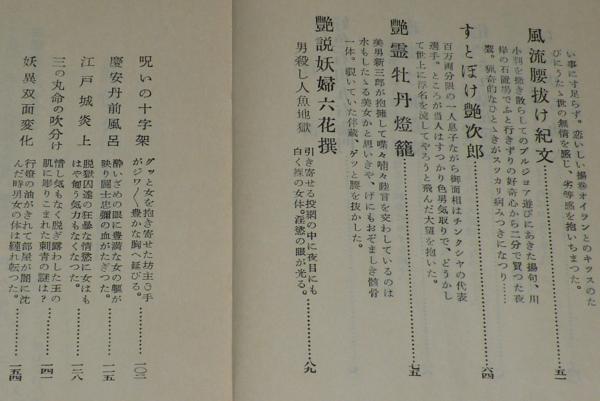 い事に寸足らず。恋いしい揚巻オイランとのキツスのた
びにうたゝ世の無情を感じ、劣等感を抱いちまつた。
風流腰抜け紀文
小判を撒き散らしてのブルジョア遊びにあきた揚句、川
岸の石置場でふと行きずりの好奇心から二分で買つた夜
鷹。猟奇的なひとゝきがスツカリ病みつきになつり……
五一
すとぼけ艶次郎
百万両分限の一人息子ながら御面相はチンクシヤの代表
選手。ところが当人はすつかり色男気取りで、どうかし
て世上に浮名を流してやろうと飛んだ大望を抱いた。
六四
艶霊牡丹燈籠
美男新三郎が抱擁して喋々喃々睦言を交わしているのは
水もしたゝる美女かと思いきや、げにもおぞましき骸骨
一体。覗いていた伴蔵、ゲッと腰を抜かした。
七五
艶説妖婦六花撰
男殺し人魚地獄
引き寄せる投網の中に夜目にも
白く裸の女体。淫慾の眼が光る。
八九
呪いの十字架
グッと女を抱き寄せた坊主の手
がジワ〳〵豊かな胸へ延びる。
一〇三
慶安丹前風呂
酔いざめの眼に豊満な女の躯が
映り闘士忠彌の血がたぎつた。
一二五
江戸城炎上
脱獄囚達の狂暴な情慾に女はも
はや匂う気力もなくなつた。
一三八
三の丸命の吹分け
惜し気もなく脱ぎ露わした玉の
肌に彫りこまれた刺青の謎は？
一四一
妖異双面変化
行燈の油がきれて部屋が闇に沈
んだ時男女の体は縺れ転つた。
一五四